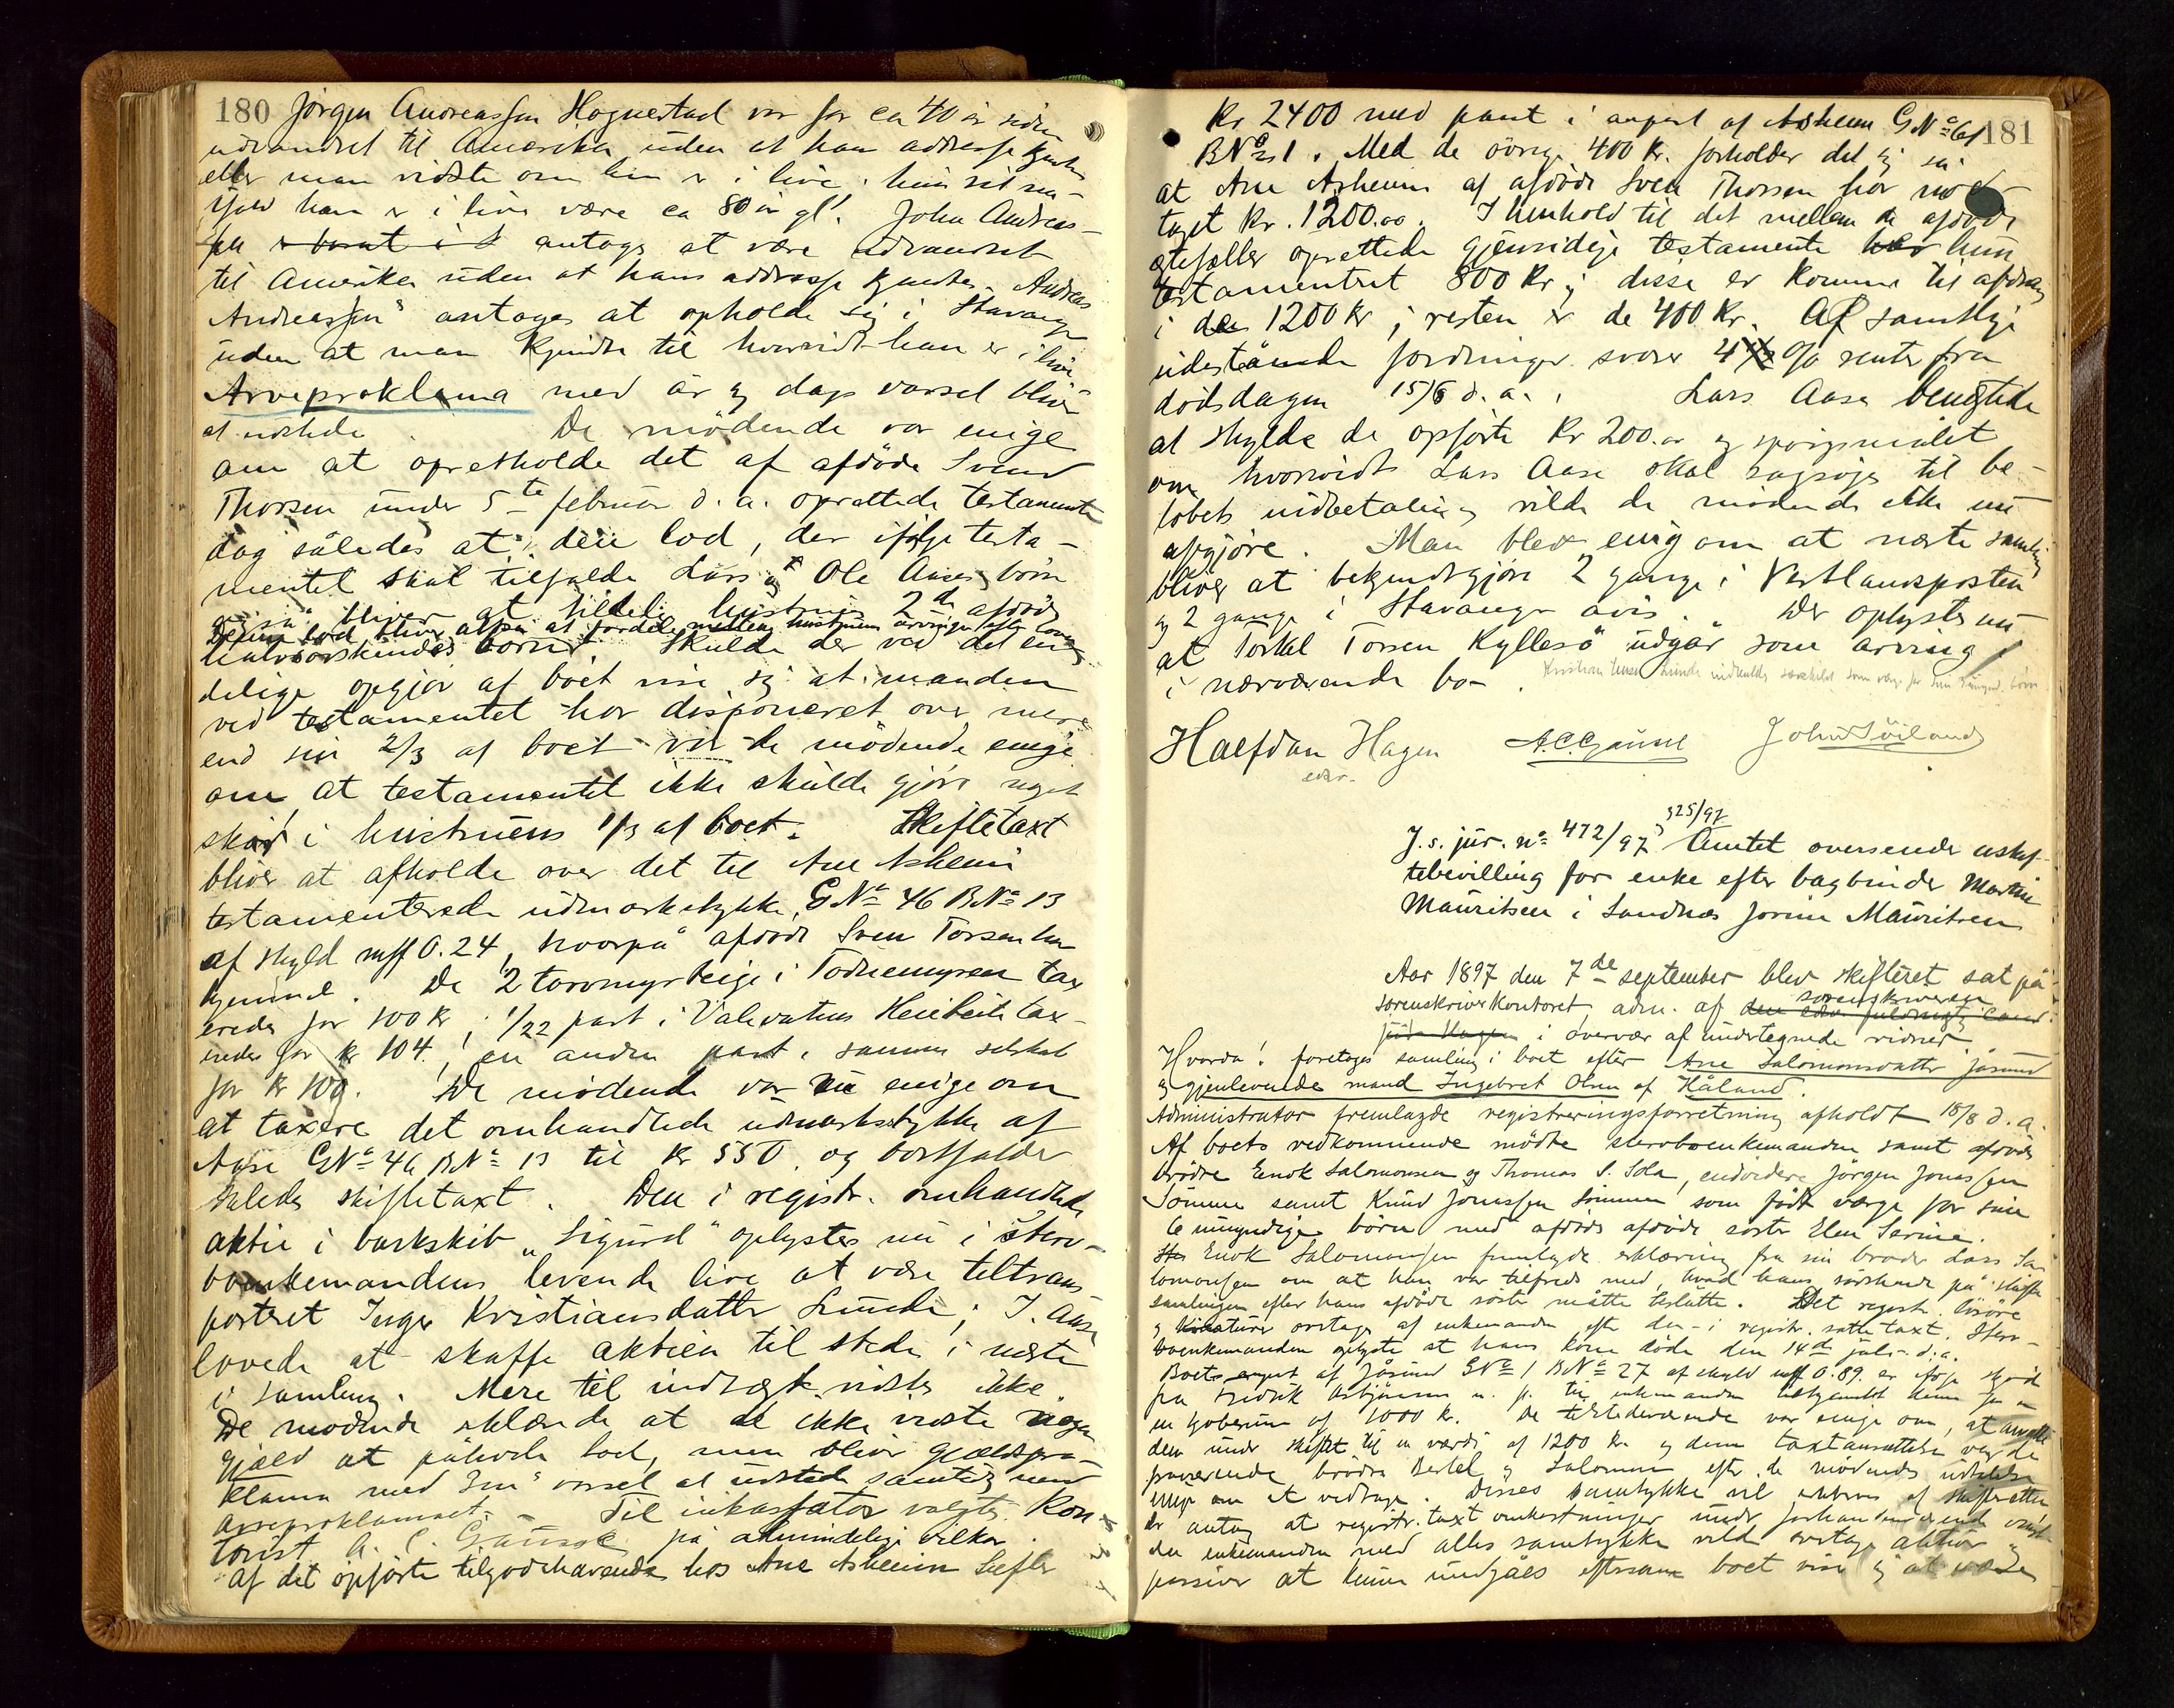 180 Jörgen Andreassen Hognestad var for ca 40 år siden
udvandret til Amerika uden at hans addresse kjendtes
eller man vidste om han er i live; hun vil nu
ifald han er i live være ca 80 år gl. John Andreas-
sen antages at være udvandret
til Amerika uden at hans addresse kjendtes. Andreas
Andreassen antages at opholde sig i Stavanger
uden at man kjendte til hvorvidt han er i live
Arveproklama med år og dags varsel bliver
at udstede. De mödende var enige
om at opretholde det af afdöde Svend
Thorsen under 5te februar d. a. oprettede testamente
dog således at den lod, der ifölge testa-
mentet skal tilfalde Lars og Ole Aases börn
bliver at tildele hustruens 2de afdöde
Denne lod bliver altså at fordele mellem hustruens arvinger efter loven
halvsöskendes börn. Skulde der ved det en-
delige opgjör af boet vise sig at manden
ved testamentet har disponeret over mere
end sin 2/3 af boet var de mödende enige
om at testamentet ikke skulde gjöre noget
skår i hustruens 1/3 af boet. Skiftetaxt
bliver at afholde over det til Ane Asheim
testamenterede udmarkstykke, GNo 46 BNo 13
af skyld mk 0.24, hvorpå afdöde Sven Torsen har
hjemmel. De 2 torvmyrteige i Todnemyren tax
eredes for 100 kr; 1/22 part i Valevatns Heiebeite tax-
eredes for kr 104, en anden part i samme selskab
for kr 100. De mödende var nu enige om
at taxere det omhandlede udmarkstykke af
Aase GNo 46 BNo 13 til kr 550, og bortfalder
således skiftetaxt. Den i registr. omhandlede
aktie i barkskib "Sigurd" oplystes nu i sterv-
boenkemandens levende live at være tiltrans
porteret Inger Kristiansdatter Lunde; J. Aase
lovede at skaffe aktien til stede i næste
samling. Mere til indtægt vidstes ikke.
De mödende erklærede at de ikke vidste nogen
gjæld at påhvile boet, men bliver gjældspro-
klama med 3 m. varsel at udstede samtidig med
arveproklamaet. – Til inkassator valgtes Kon
torist A. C. Gausel på almindelige vilkår.
Af det opförte tilgodehavende hos Ane Asheim hefter
181
Kr 2400 med pant i anpart af Asheim GNo 61
BNo 1. Med de övrige 400 kr. forholder det sig så
at Ane Asheim af afdöde Sven Thorsen har mod
taget kr. 1200.00. I henhold til det mellem de afdöde
ægtefæller oprettede gjensidige testamente hun
testamentret 800 kr; disse er komne til afdrag
i de 1200 kr; resten er de 400 kr. Af samtlige
udestående fordringer svares 4 % renter fra
dödsdagen 15/6 d. a. Lars Aase benegtede
at skylde de opförte kr 200.00 og spörgsmålet
om hvorvidt Lars Aase skal sagsöges til be-
löbets udbetaling vilde de mödende ikke nu
afgjöre. Man blev enig om at næste samling
bliver at bekjendtgjöre 2 gange i Vestlandsposten
og 2 gange i Stavanger avis. Der oplystes nu
at Torkel Torsen Kyllesö udgår som arving
i nærværende bo –
Halfdan Hagen A. C. Gausel John Söiland
edsv.
J. s. jur. no 472/97, 325/97 Amtet oversender uskif-
tebevilling for enke efter bagbinder Martin
Mauritsen i Sandnæs Jorine Mauritsen
Aar 1897 den 7de september blev skifteret sat på
sorenskriverkontoret, adm. af sorenskriveren
i overvær af undertegnede vidner
Hvorda! foretoges samling i boet efter Ane Salomonsdatter Jåsund
og gjenlevende mand Ingebret Olsen af Håland.
Administrator fremlagde registreringsforretning afholdt 18/8 d. a.
Af boets vedkommende mödte stervboenkemanden samt afdödes
brödre Enok Salomonsen og Thomas S. Sola, endvidere Jörgen Jonassen
Sömme samt Knud Jonassen Sömme som födt værge for sine
6 umyndige börn med afdödes afdöde söster Elen Serine.
Enok Salomonsen fremlagde erklæring fra sin broder Lars Sa
lomonsen om at han var tilfreds med, hvad hans söskende på skifte
samlingen efter hans afdöde söster måtte beslutte. Det registr. lösöre
og kreaturer overtages af enkemanden efter den i registr. satte taxt. Sterv-
boenkemanden oplyste at hans kone döde den 14de juli d. a.
Boets anpart af Jåsund GNo 1 BNo 27 af skyld mk 0.89 er ifölge skjöde
fra Fredrik Asbjörnsen
en kjöbesum af 1000 kr. De tilstedeværende var enige om, at ansætte
den under skiftet til en værdi af 1200 kr. og denne taxtansættelse var de
fraværende brödre Bertel og Salomon efter de mödendes udtalelse
enige om at vedtage. Disses samtykke vil
der antog at registr. taxt omkostninger under forhandling
den enkemanden med alles samtykke vilde overtage aktiver og
passiver at kunne undgåes eftersom boet viser sig at være